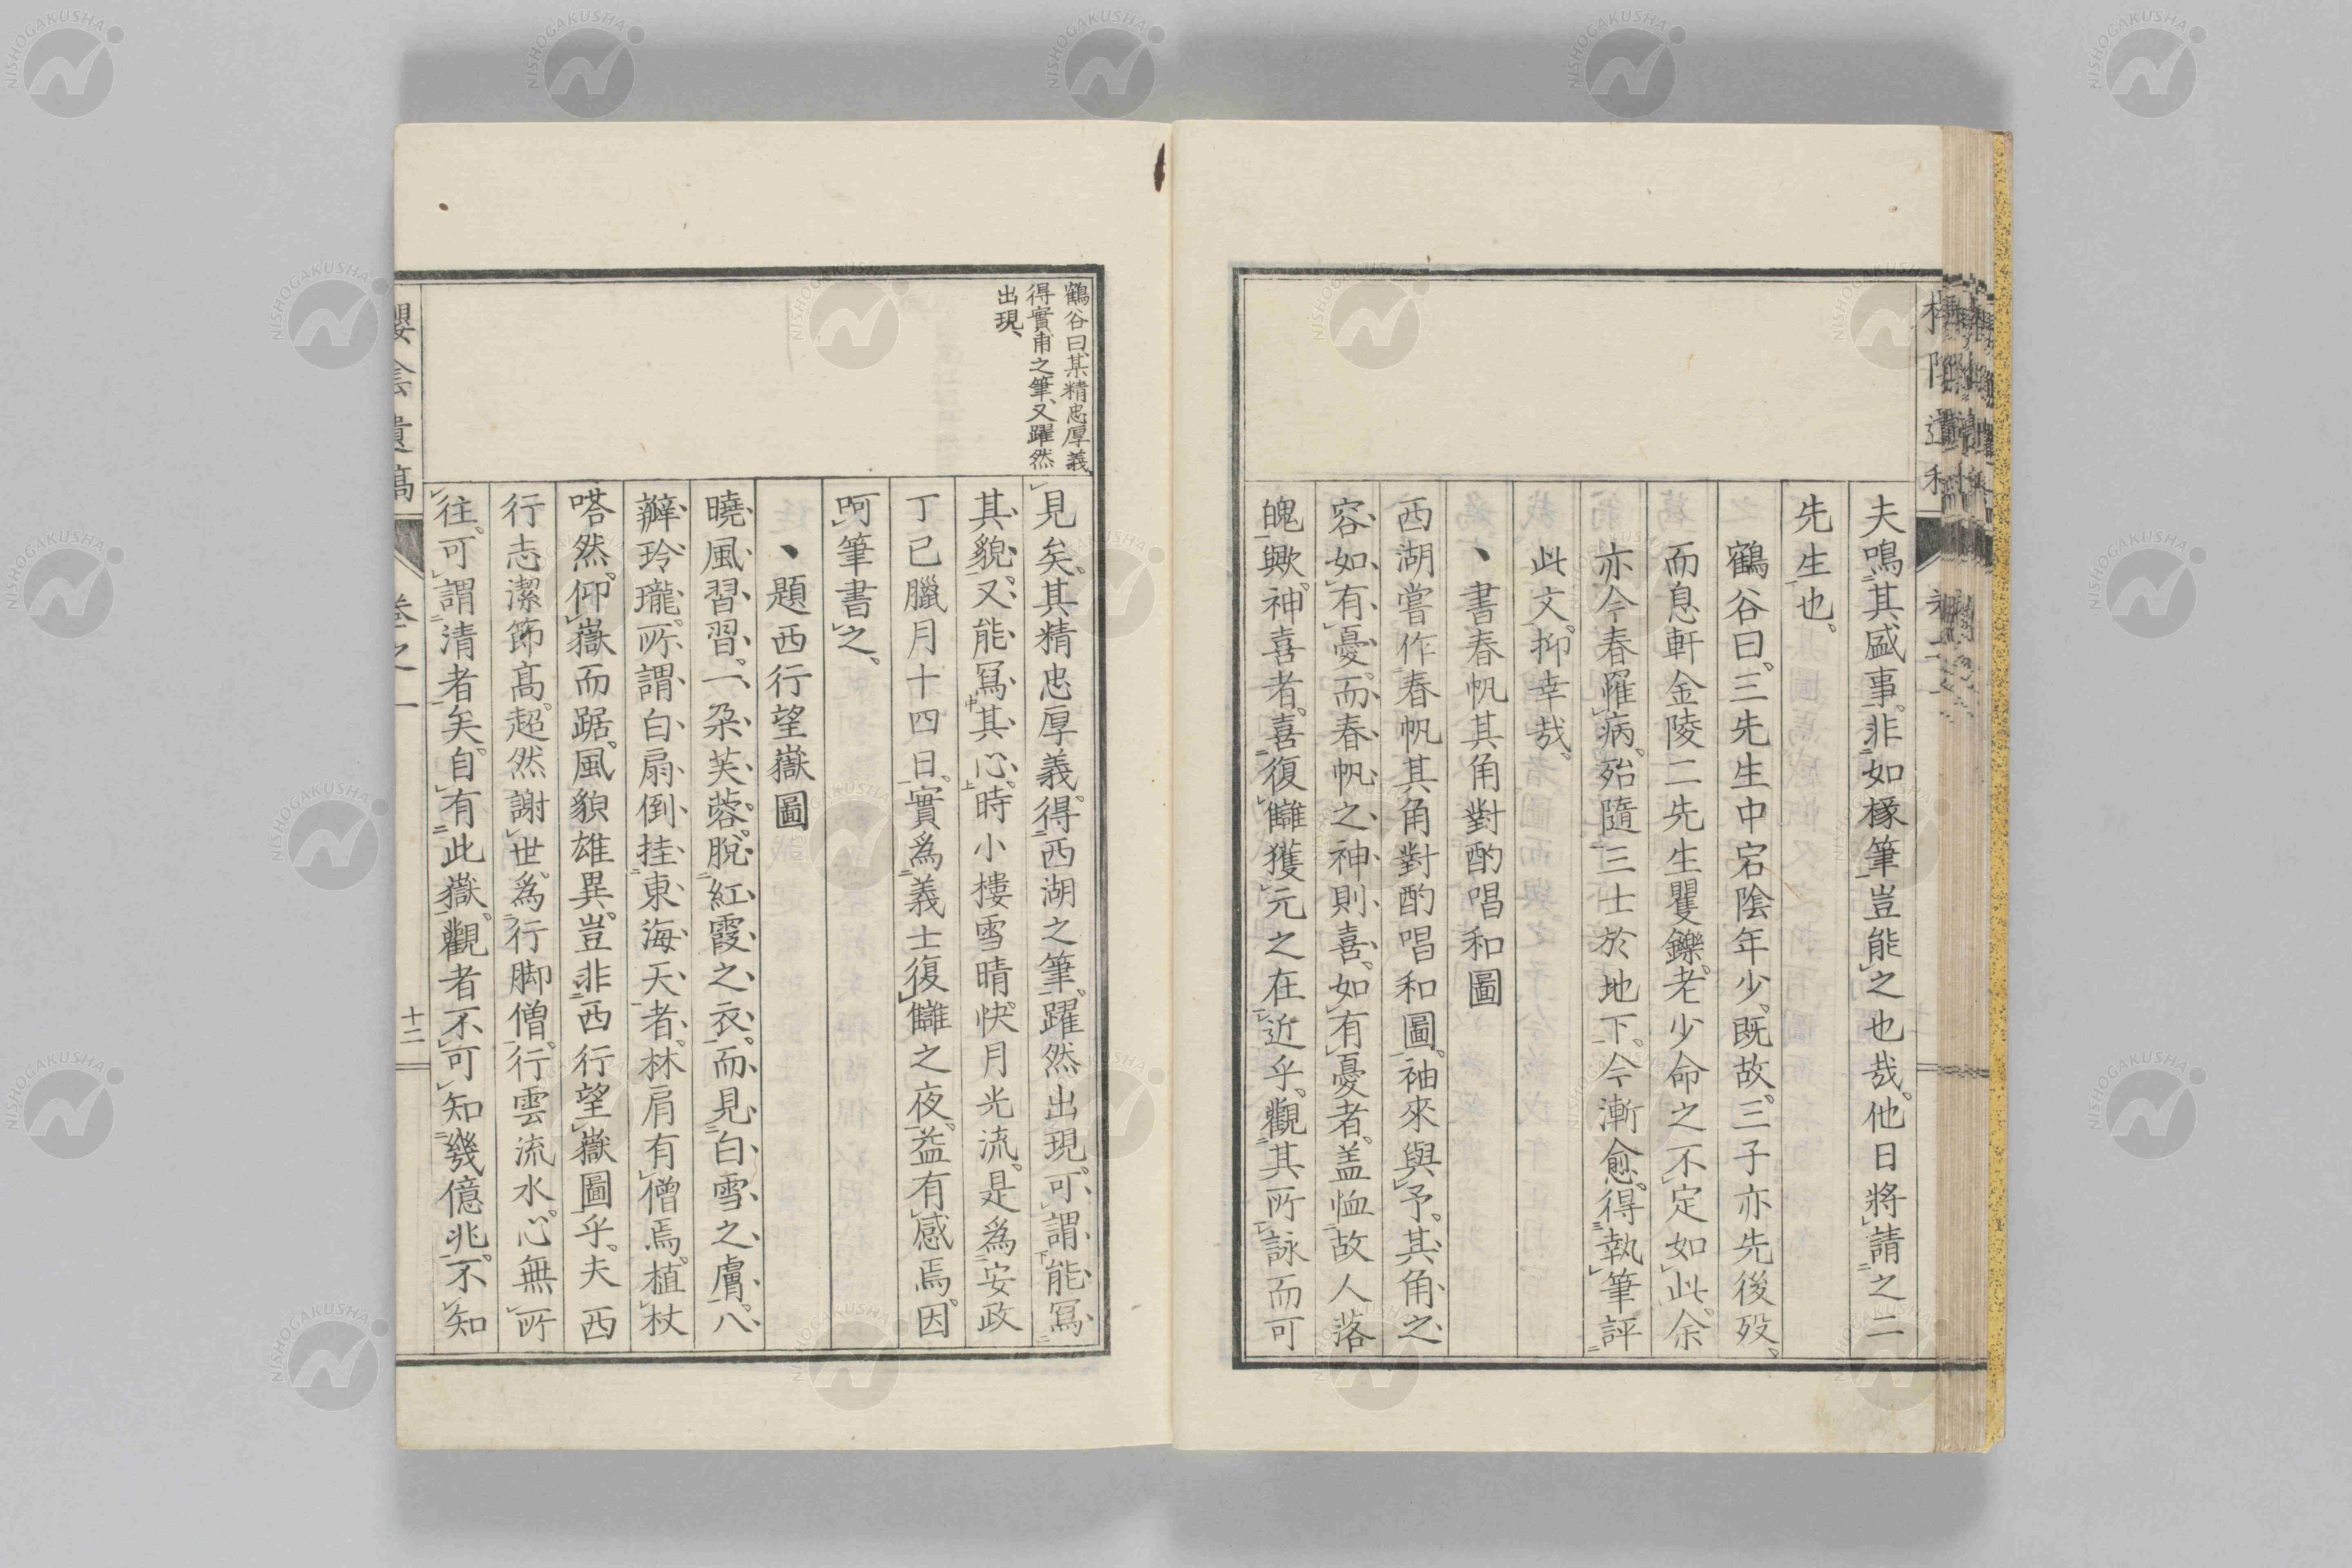 夫鳴其盛事。非如椽筆豈能之也哉。他日將請之二
先生也、
鶴谷曰。三先生中宕陰年少。既故。三子亦先後歿、
而息軒金陵二先生矍鑠。老少命之不定如此。余
亦今春罹病。殆隨三士於地下。今漸愈。得執筆評
此文。抑幸哉、
書春帆其角對酌唱和圖
西湖嘗作春帆其角對酌唱和圖。袖來與予。其角之
容如有憂。而春帆之神則喜。如有憂者。盖恤故人落
魄歟。神喜者。喜復讎獲元之在近乎。觀其所詠而可
鶴谷曰、某精忠厚義
得實甫之筆、又躍然
出現、
見矣。其精忠厚義。得西湖之筆。躍然出現。可謂能寫
其貌。又能寫其心。時小樓雪晴。快月光流。是爲安政
丁巳臘月十四日。實爲義士復讎之夜。益有感焉。因
呵筆書之、
題西行望嶽圖
曉風習習。一朶芙蓉。脫紅霞之衣。而見白雪之膚。八
瓣玲瓏。所謂白扇倒挂東海天者。林肩有僧焉。植杖
嗒然。仰嶽而踞。風貌雄異。豈非西行望嶽圖乎。夫西
行志潔節高。超然謝世。爲行脚僧。行雲流水。心無所
往。可謂清者矣。自有此嶽。觀者不可知幾億兆。不知
櫻陰遺稿
卷之一
十二